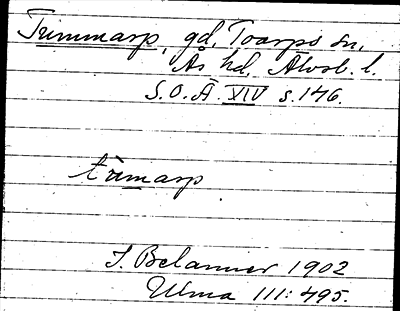 Trimmarp, gd, Toarps sn,
Ås hd. Älvsb. l.
S.O.Ä. XIV s. 146.
trimarp
Belanner 1902
Ulma III: 495.